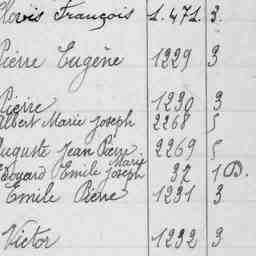 Clovis François 1.471 3.
Pierre Eugène 1229 3
Pierre 1230 3
Albert Marie Joseph 2268 5
Auguste Jean Pierre 2269 5
Marie
Edouard Emile Joseph 32 1 D.
Emile Pierre 1231 3
Victor 1232 3